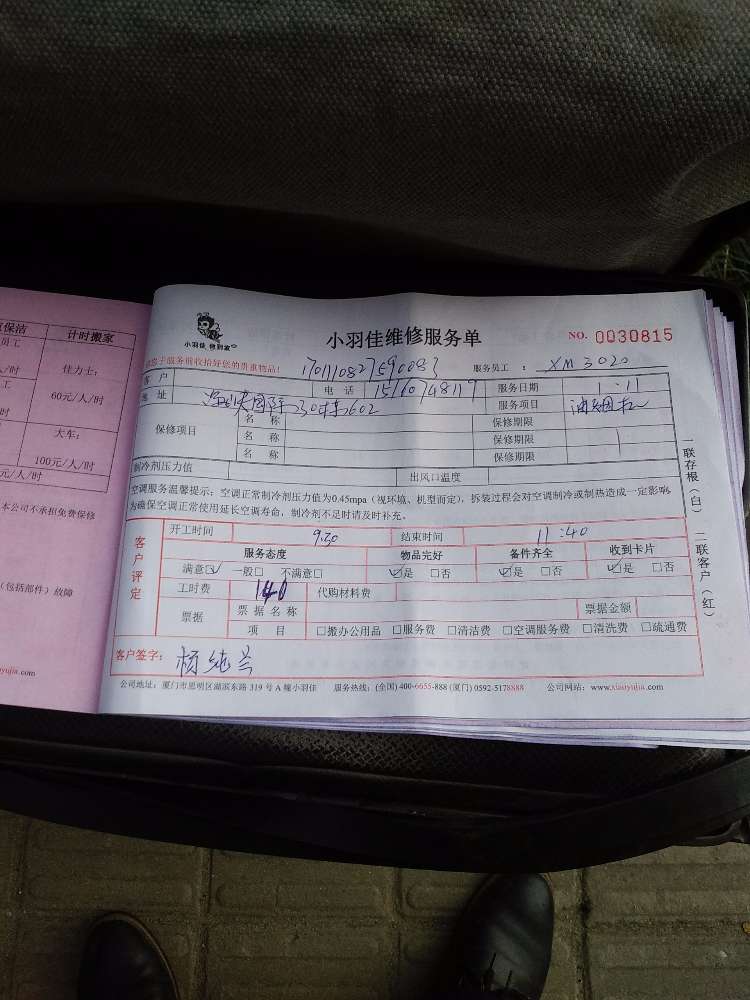 小羽佳 帮到家
小羽佳维修服务单
NO. 0030815
请您于服务前收拾好您的贵重物品!
服务员工 : XM 3020
客户
电话
服务日期 1.11
地址
服务项目 油烟机
保修项目
名称 保修期限
名称 保修期限
名称 保修期限
制冷剂压力值 出风口温度
空调服务温馨提示:空调正常制冷剂压力值为0.45mpa(视环境、机型而定),拆装过程会对空调制冷或制热造成一定影响
为确保空调正常使用延长空调寿命,制冷剂不足时请及时补充。
客户评定
开工时间 9:30 结束时间 11:40
服务态度 物品完好 备件齐全 收到卡片
满意☑ 一般□ 不满意□ ☑是 □否 ☑是 □否 ☑是 □否
工时费 140 代购材料费
票据 票据名称 票据金额
项目 □搬办公用品 □服务费 □清洁费 □空调服务费 □清洗费 □疏通费
客户签字: 杨纯兰
公司地址:厦门市思明区湖滨东路 319 号 A 幢小羽佳 服务热线:(全国) 400-6655-888 (厦门) 0592-5178888 公司网站:www.xiaoyujia.com
一联存根(白) 二联客户(红)
保洁 计时搬家
员工
人/时
佳力士:
工
60元/人/时
/时
大车:
人/时
100元/人/时
元/人/时
本公司不承担免费保修
(包括部件)故障